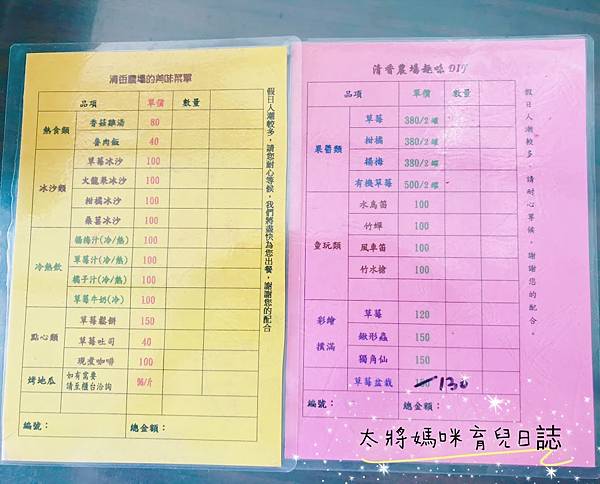 清香農場的美味菜單
品項 單價 數量
熱食類
香菇雞湯 80
魯肉飯 40
冰沙類
草莓冰沙 100
火龍果冰沙 100
柑橘冰沙 100
桑葚冰沙 100
冷熱飲
楊梅汁(冷/熱) 100
草莓汁(冷/熱) 100
橘子汁(冷/熱) 100
草莓牛奶(冷) 100
點心類
草莓鬆餅 150
草莓吐司 40
現煮咖啡 100
烤地瓜
如有需要
請至櫃台洽詢
90/斤
編號: 總金額:
假日人潮較多,請您耐心等候,我們將盡快為您出餐,謝謝您的配合
清香農場趣味DIY
品項 單價 數量
果醬類
草莓 380/2罐
柑橘 380/2罐
楊梅 380/2罐
有機草莓 500/2罐
童玩類
水鳥笛 100
竹蟬 100
風車笛 100
竹水槍 100
彩繪
撲滿
草莓 120
鍬形蟲 150
獨角仙 150
草莓盆栽 130
編號: 總金額:
假日人潮較多,請耐心等候,謝謝您的配合。
太將媽咪育兒日誌